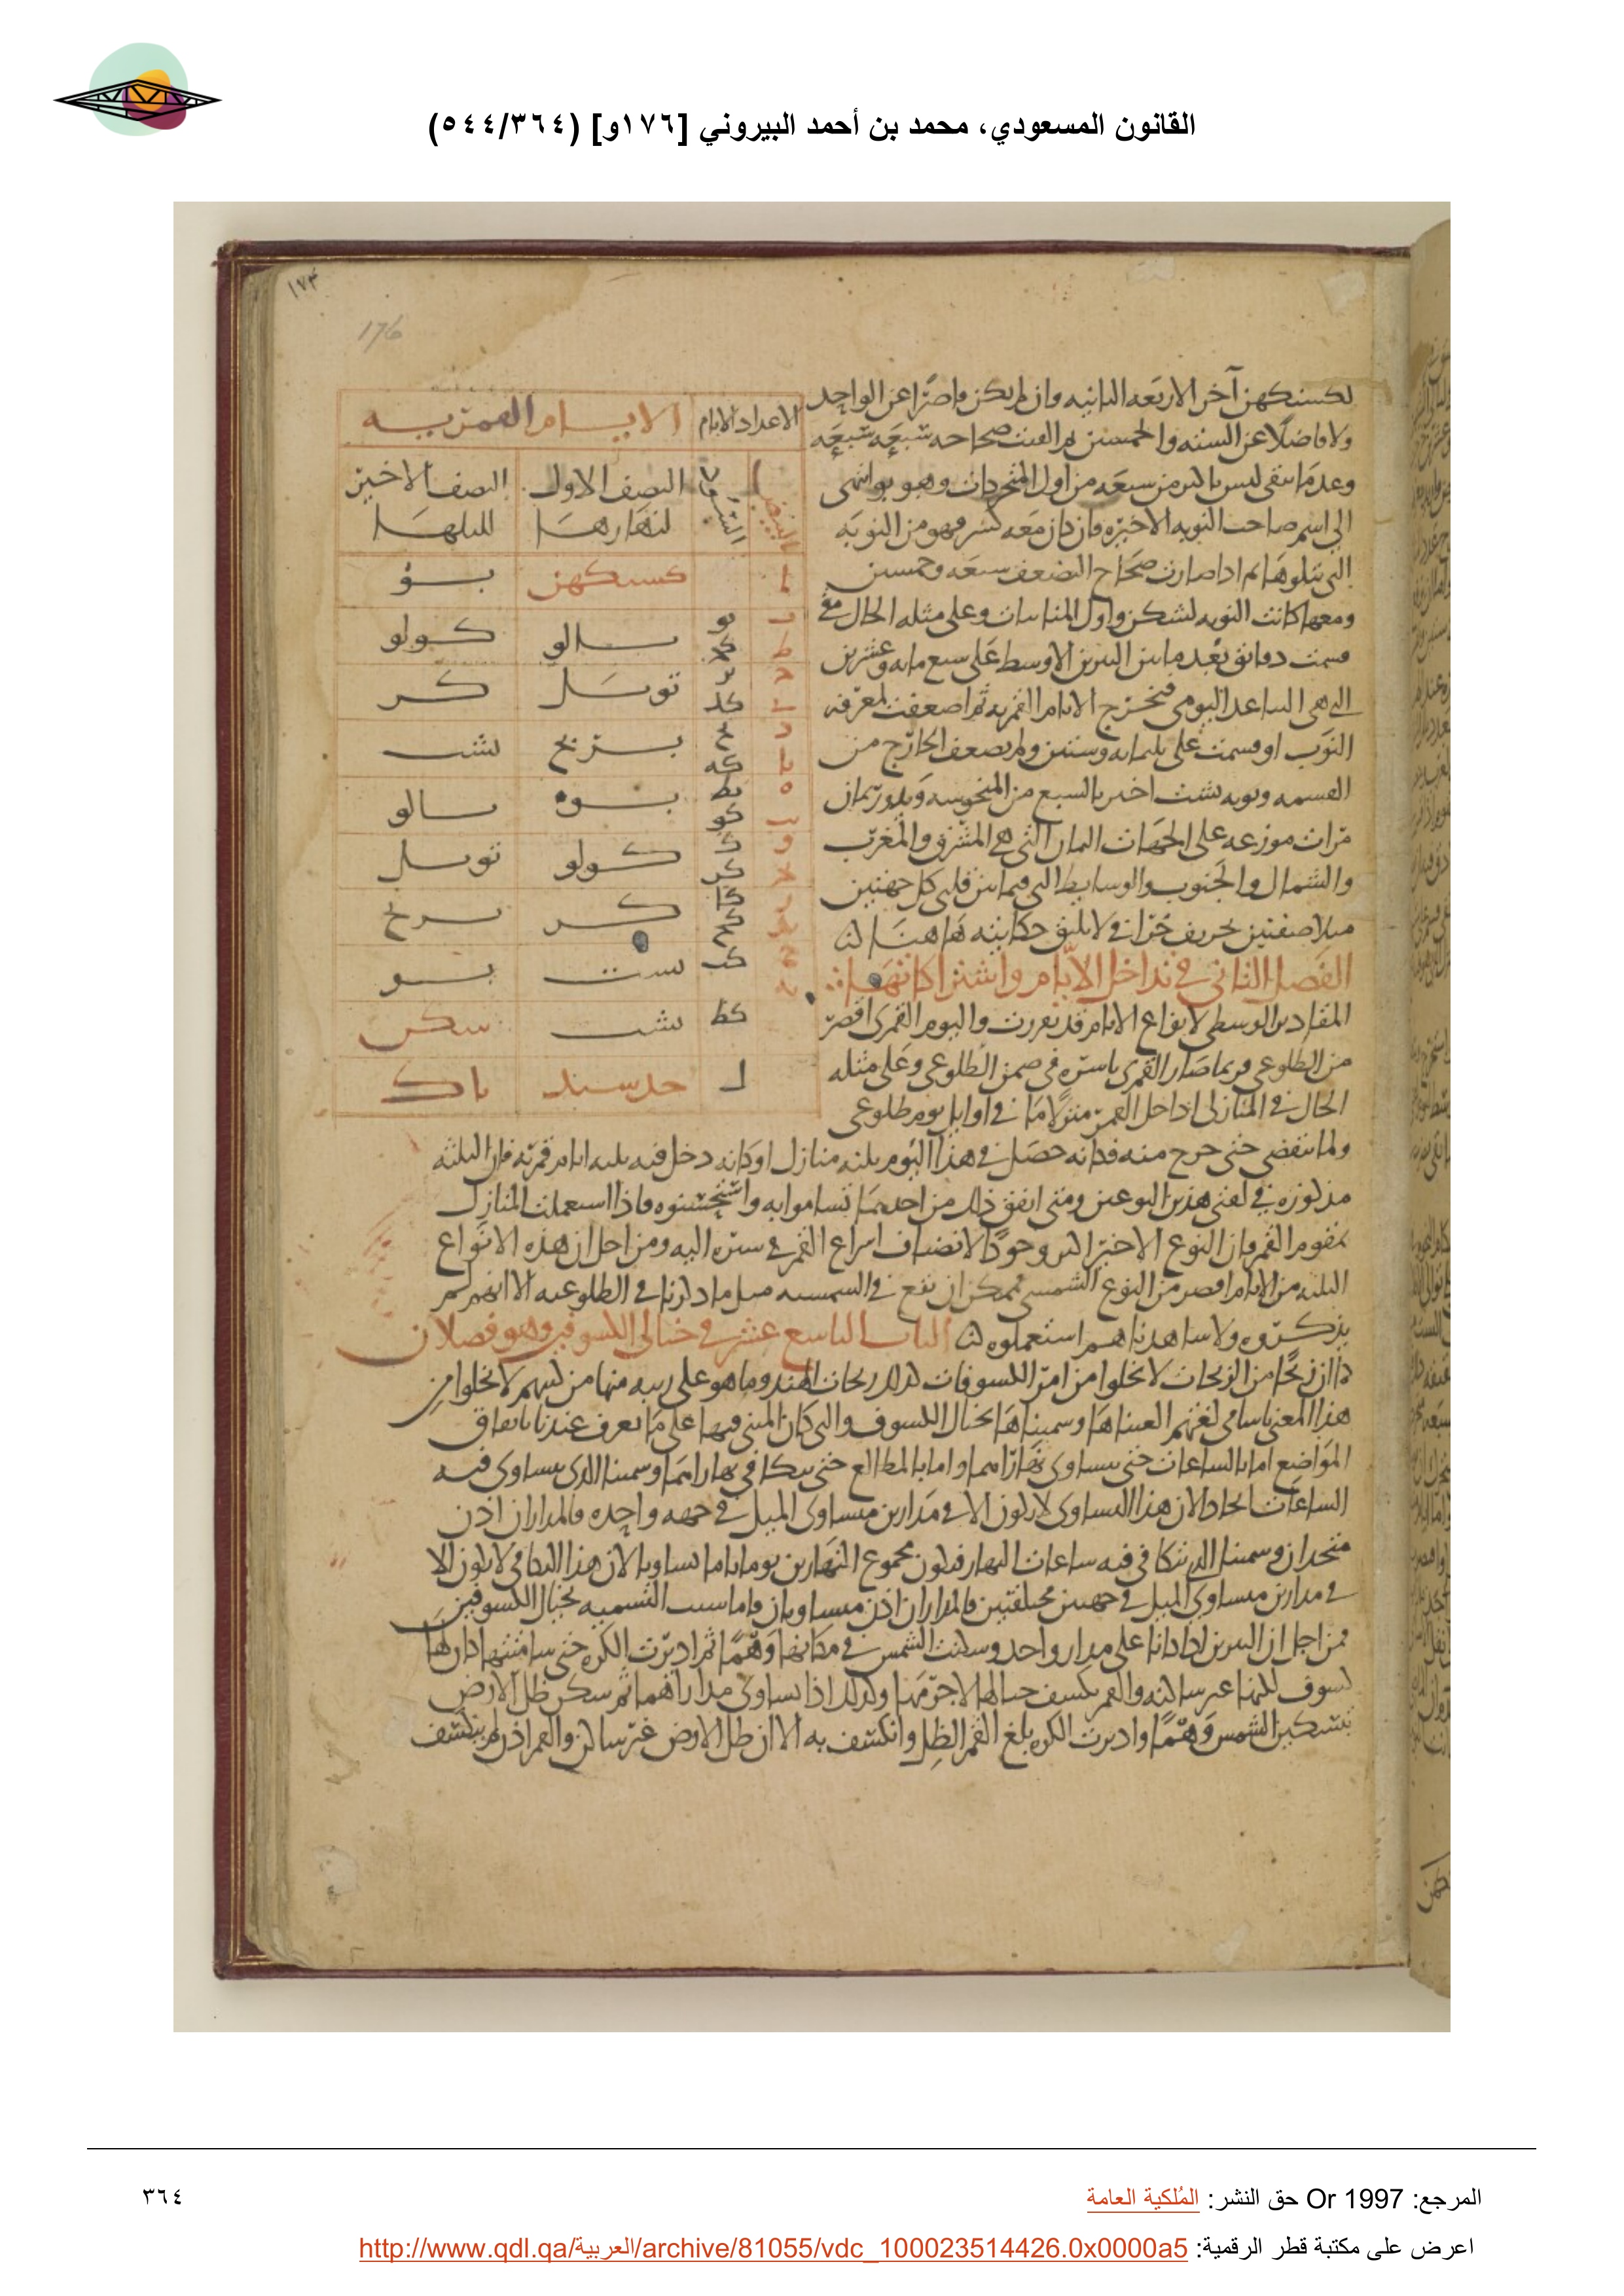 القانون المسعودي، محمد بن أحمد البيروني [١٧٦و] (٥٤٤/٣٦٤)
١٧٣
176
لكستكهن آخر الاربعه الثانيه وان لم يكن قاصرًا عن الواحد
ولا فاضلًا عن السته والخمسين القيت صحاحه سَبعَه سَبعَه
وعد ما يبقى ليس باكثر من سبعَه من اول المتحركات وهو بو انتهى
الى اسم صاحب النوبه الاخيره فان كان معَه كسر فهو من النوبَه
التى تتلوها ثم اذا صارت صحَاح التضعف سبعَه وخمسين
ومعها كانت النوبه لشكن واول الثابتات وعلى مثله الحال متى
قسمت دقائق بُعد ما بين النيرين الاوسط عَلى سبع مايه وعشرين
التى هى التباعد اليومى فيخرج الايام القمريه ثم اضعفت لمعرفه
النوَب او قسمت على ثلثمايه وستين ولم يضعف الخارج من
القسمه ونوبه بشت
مَرات موزعه على الجهَات الثمان التى هى المشرق والمغرب
والشمال والجنوب والوسايط التى فيما بين كل جهتين
لا يليق حكايته هَاهنَا
الفَصل الثانى فى تداخل الأيام واشتراكاتهَا
المقادير الوسطى لانواع الايام قد تقررت واليوم القمرى اقصر
من الطلوعى فربما صَار القمرى باسره فى ضمن الطلوعى وعَلى مثله
الحال فى المنازل اذا حل القمر منزلًا مَا فى اوايل يوم طلوعى
ولما ينقضى حتى خرج منه فكانه حصَل فى هذا اليَوم ثلثه منازل او كانه دخل فيه ثلثه ايام قمريَه فان الثلثه
مذكوره فى لغتى هذين النوعين ومتى اتفق ذلك من احدهمَا تشاموا به واستنحسوه فاذا استعملت المنازل
بمقوم القمر فان النوع الاخير اكثر وجودًا لانضياف اسراع القمر فى سيره اليه ومن اجل ان هذه الانوَاع
الثلثه من الايام اقصر من النوع الشمسى فممكن ان تقع فى الشمسيه مثل ما ذكرنا فى الطلوعيه الا انهم لم
يذكروه ولا شاهدناهم استعملوه
الباب التاسع عشر فى خيالى الكسوفين وهو فصلان
كما ان زيجًا من الزيجات لا يخلوا من امر الكسوفات كذلك زيجات الهند وما هو على رتبه منها من كتبهم لا يخلوا من
هذا المعنى باسامى لغتهم القيناها وسميناها بخيال الكسوف والتى كان المبنى فيها على مَا يعرف عندنا باتفاق
المَواضع اما بالساعات حتى يتساوى نهَاراهما واما بالمطالع حتى يتكافى نهاراهمَا وسمينا الذى يتساوى فيه
الساعَات اتحادا لان هذا التساوى لا يكون الا فى مَدارين متساوى الميل فى جهه واحده فالمداران اذن
متحدان وسمينا الذى تكافى فيه ساعات النهار فيكون مجموع النهَارين يوما تاما تساويا لان هذا التكافى لا يكون الا
فى مدارين متساوى الميل فى جهتين مختلفتين فالمداران اذن متساويان واما سبب التسميه بخيال الكسوفين
فمن اجل ان النيرين اذا كانا على مدار واحد وسكنت الشمس فى مكانها وَهمًا ثم اديرت الكره حتى سامتتها كان لهَا
كسوف لكنها غير ساكنه والقمر يكسف خيالها لا جرمَهَا وكذلك اذا تساوى مداراهما ثم سكن ظل الارض
بتسكين الشمس وَهْمًا واديرت الكره بلغ القمر الظل وانكسف به الا ان ظل الارض غير ساكن والقمر اذن لم ينكسف
الاعداد الايام الايام القمريه
النصف الاول النصف الاخير
لنهارهَا لليلهَا
كستكهن بو
يو بالو كولو
كج
يز توتيل كر
كد
يح برنج بشت
كه
يط بوه بالو
كو
ك كولو توتيل
كز
كا كر برنج
كح
كب بشت بو
كط بشت سكن
ل جدسبد ناك
٣٦٤
المرجع: Or 1997 حق النشر: المُلكية العامة
اعرض على مكتبة قطر الرقمية: http://www.qdl.qa/العربية/archive/81055/vdc_100023514426.0x0000a5